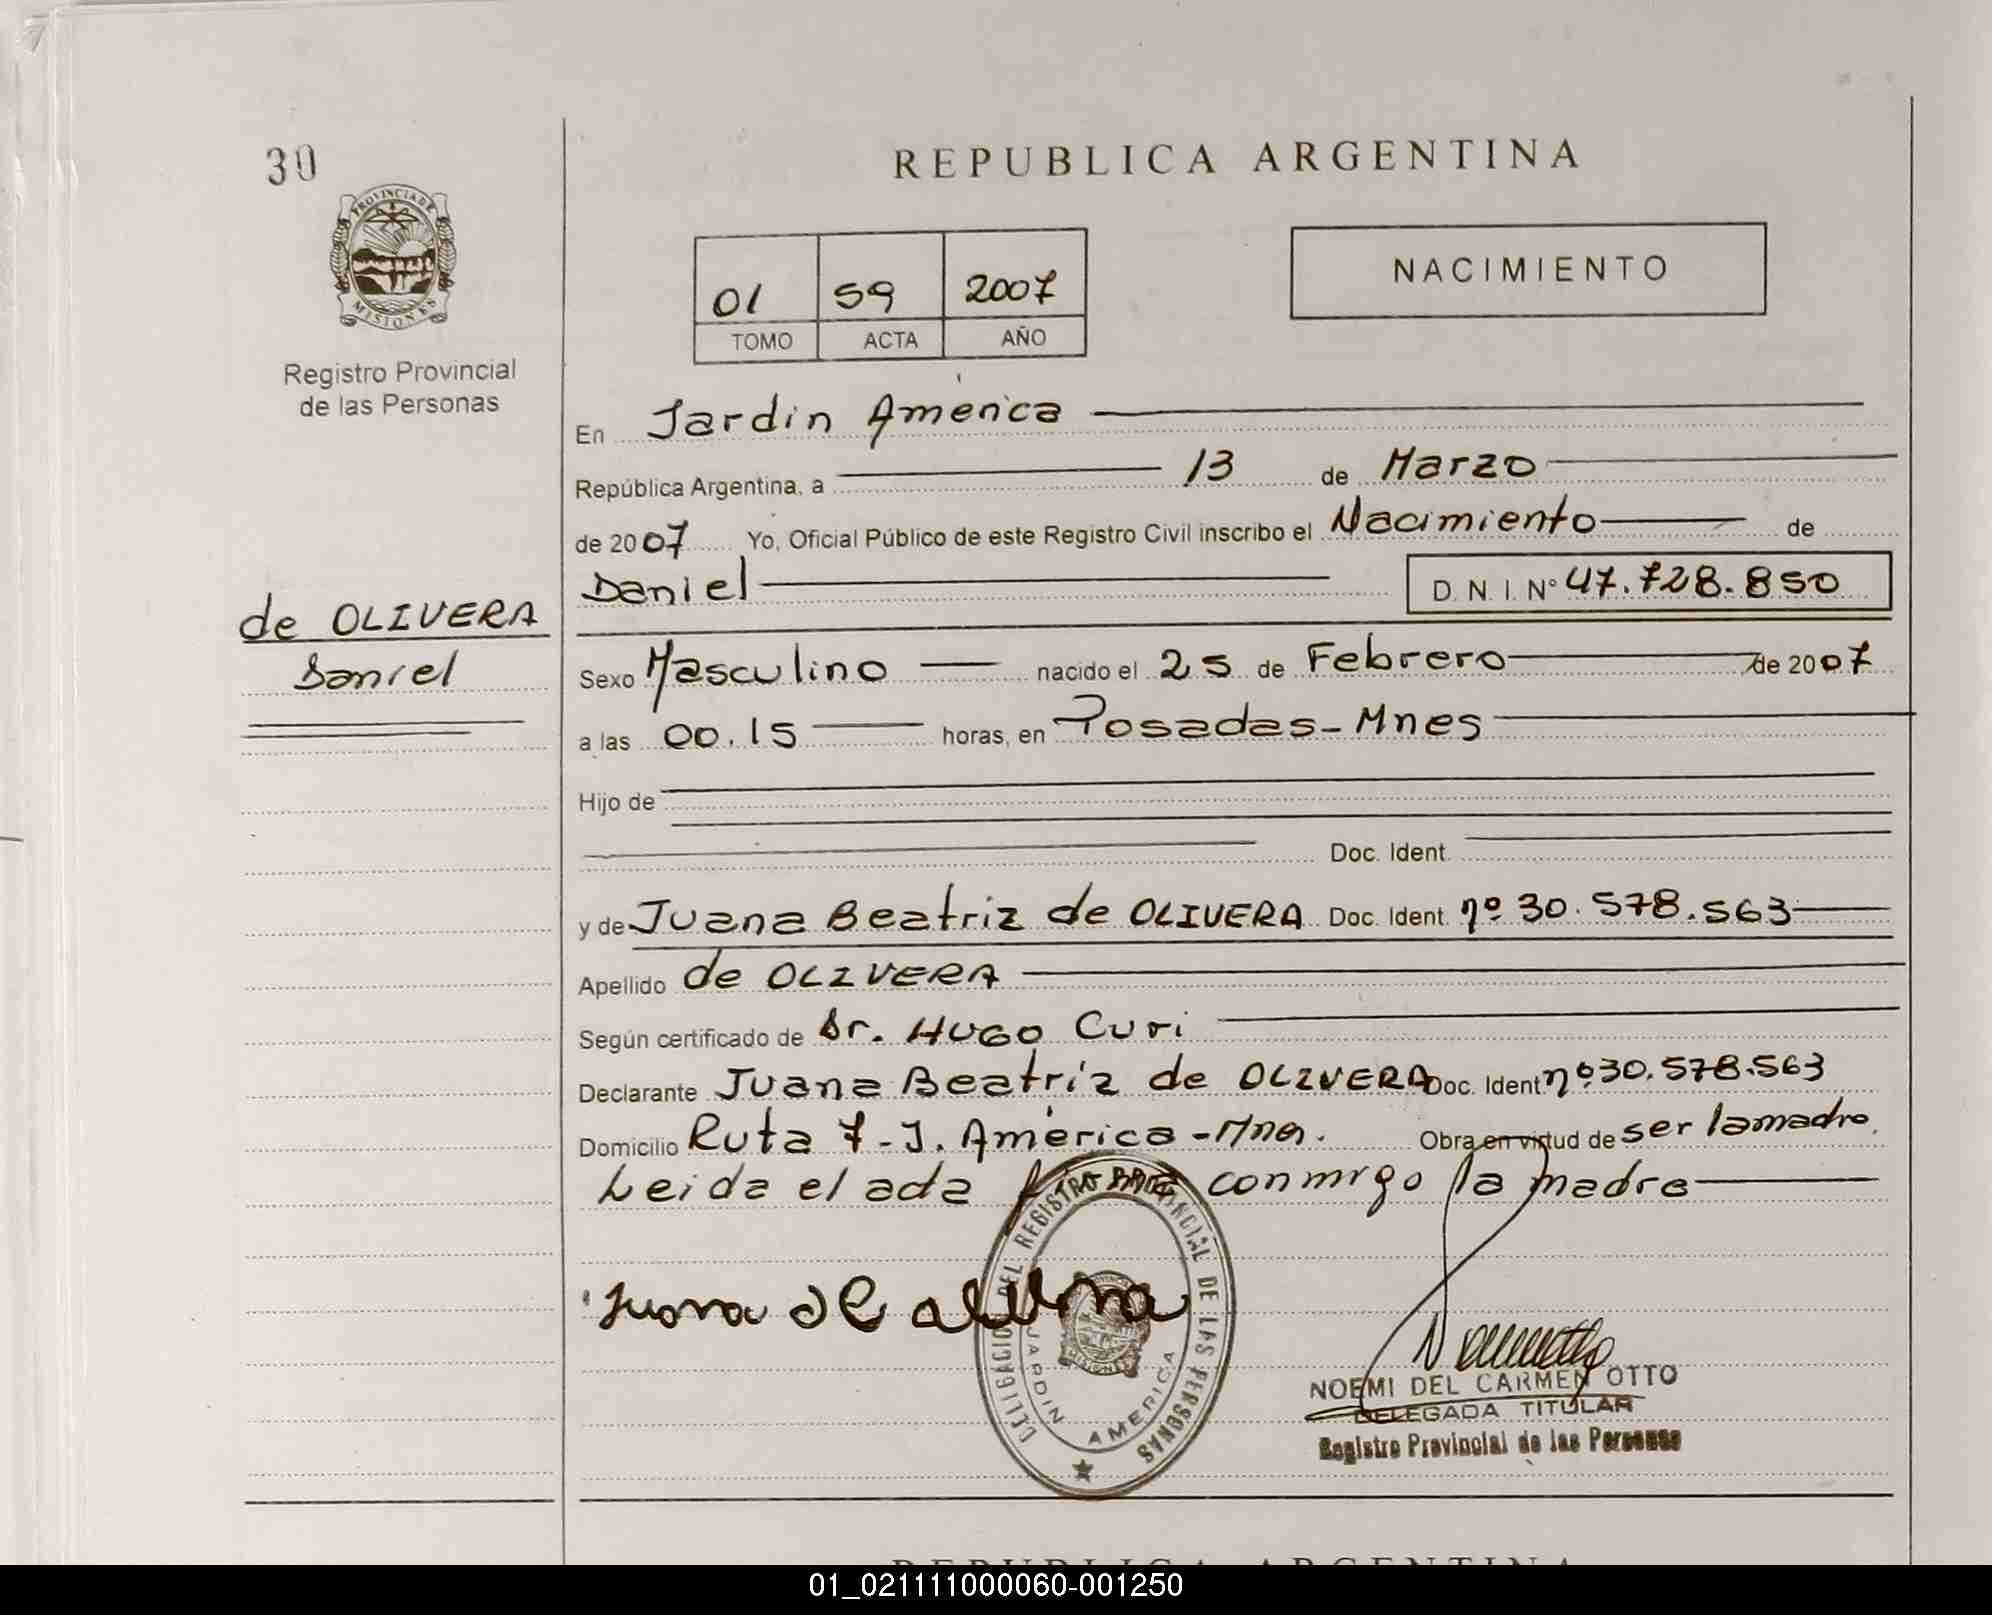 30
REPUBLICA ARGENTINA
PROVINCIA DE
MISIONES
Registro Provincial
de las Personas
01 59 2007
TOMO ACTA AÑO
NACIMIENTO
En Jardin América
República Argentina, a 13 de Marzo
de 2007 Yo, Oficial Público de este Registro Civil inscribo el Nacimiento de
Daniel D. N. I. Nº 47.728.850
de OLIVERA
Daniel
Sexo Masculino nacido el 25 de Febrero de 2007
a las 00.15 horas, en Posadas-Mnes
Hijo de
Doc. Ident.
y de Juana Beatriz de OLIVERA Doc. Ident. nº 30.578.563
Apellido de OLIVERA
Según certificado de Dr. HUGO Curi
Declarante Juana Beatriz de OLIVERA Doc. Ident nº 30.578.563
Domicilio Ruta 7-J. América-Mnes. Obra en virtud de ser la madre.
Leida el acta conmigo la madre
DELEGACION DEL REGISTRO PROVINCIAL DE LAS PERSONAS
JARDIN AMERICA
NOEMI DEL CARMEN OTTO
DELEGADA TITULAR
Registro Provincial de las Personas
REPUBLICA ARGENTINA
01_021111000060-001250